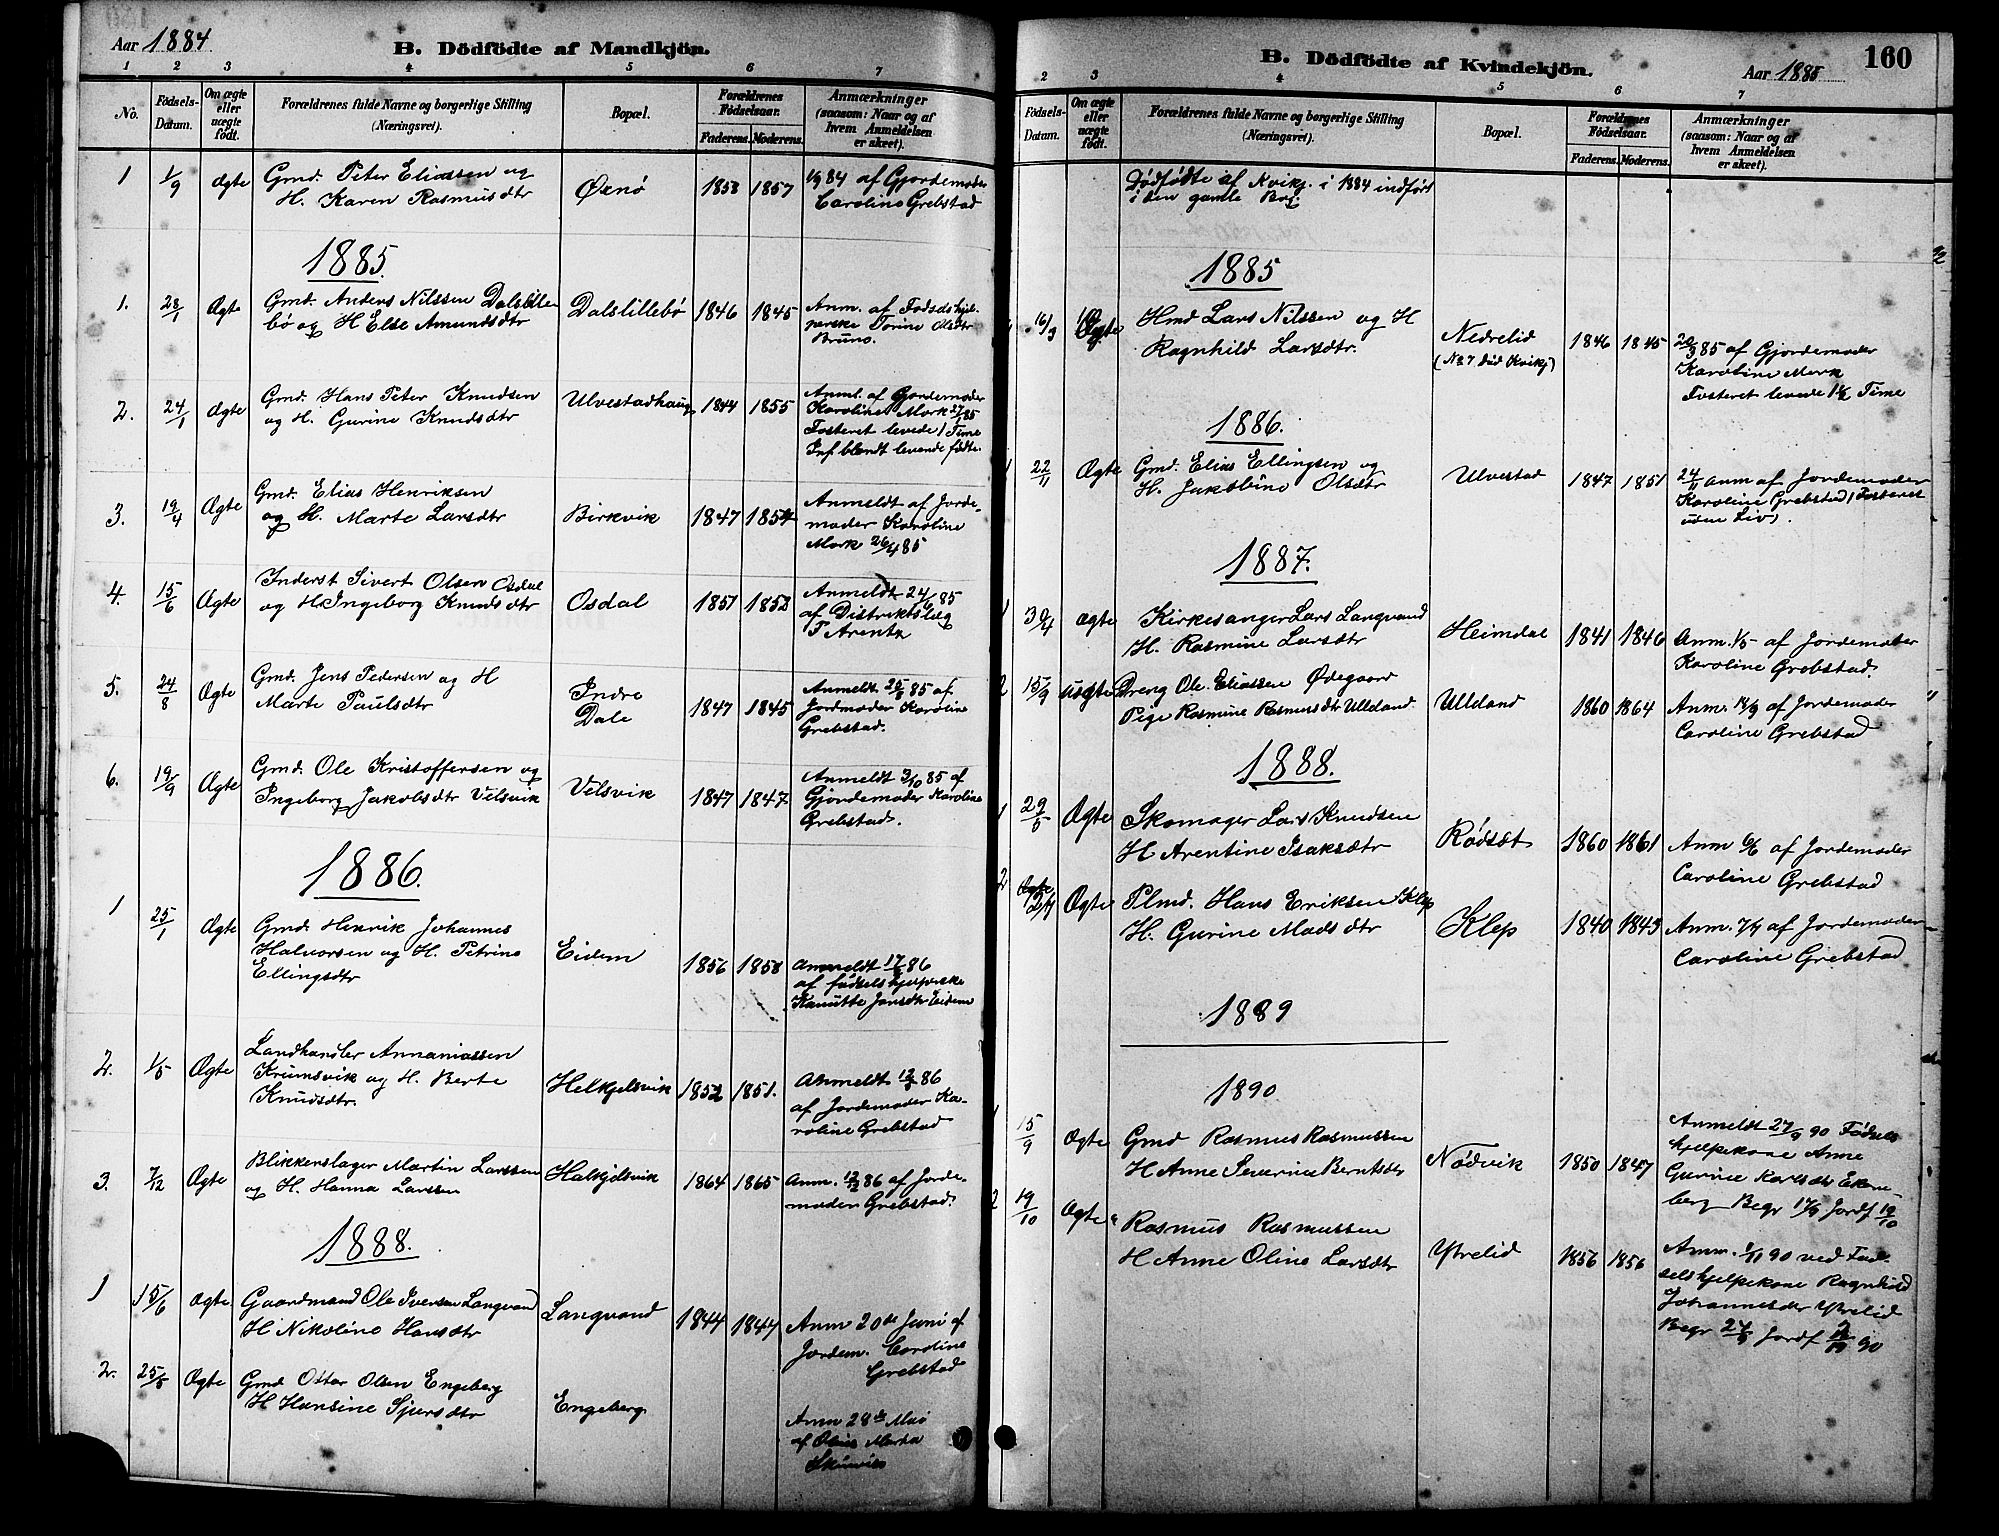 Aar 1884
B. Dödfödte af Mandkjön.
1 2 3 4 5 6 7
No.
Födsels-
Datum.
Om ægte
eller
uægte
født.
Forældrenes fulde Navne og borgerlige Stilling
(Næringsvei).
Bopæl.
Forældrenes
Födselsaar.
Faderens. Moderens.
Anmærkninger
(saasom: Naar og af
hvem Anmeldelsen
er skeet).
1 1/9 ægte Gmd. Peter Eliassen og
H. Karen Rasmusdtr
Øenø 1853 1857
1/9 84 af Gjordemoder
Caroline Grebstad
1885.
1. 28/1 Ægte Gmd. Anders Nilssen Dalslille
bø og H Else Amundsdtr
Dalslillebø 1846 1845
Anm. af Fødselshjel-
perske Torine Olsdtr
Bruno.
2. 24/1 ægte Gmd. Hans Peter Knudsen
og H. Gurine Knudsdtr
Ulvestadhaug 1844 1855
Anml. af Gjordemoder
Karoline Mork 27/1 85
Fosteret levede 1 Time
Inf blandt levende fødte.
3. 19/4 Ægte Gmd. Elias Henriksen
og H. Marte Larsdtr
Birkvik 1847 1854
Anmeldt af Jorde-
moder Karoline
Mork 26/4 85
4. 15/6 Ægte Inderst Sivert Olsen Osdal
og H. Ingeborg Knudsdtr
Osdal 1851 1853
Anmeldt 24/6 85
af Distriktslæg
P Arentz
5. 24/8 Ægte Gmd. Jens Pedersen og H
Marte Paulsdtr
Indre
Dale
1847 1845
Anmeldt 25/8 85 af
Jordmoder Karoline
Grebstad.
6. 19/9 Ægte Gmd. Ole Kristoffersen og
Ingeborg Jakobsdtr Velsvik
Velsvik 1847 1847
Anmeldt 3/10 85 af
Gjordemoder Karoline
Grebstad.
1886.
1 25/1 Ægte Gmd. Henrik Johannes
Halvorsen og H. Petrine
Ellingsdtr
Eidem 1856 1858
Anmeldt 86
af fødselshjelperske
Kanutte Jonsdtr Eidem
2. 1/5 Ægte Landhandler Annaniassen
Krumsvik og H. Berte
Knudsdtr.
Helkjelsvik 1852 1851.
Anmeldt 86
af Jordemoder Ka-
roline Grebstad
3. 7/12 Ægte Blikkenslager Martin Larssen
og H. Hanna Larsen
Halkjelsvik 1864 1865
Anm. 12/12 86 af Jorde-
moder Grebstad.
1888.
1 15/6 Ægte. Gaardmand Ole Iversen Langvand
H Nikoline Hansdtr
Langvand 1844 1847
Anm 20de Juni af
Jordem. Caroline
Grebstad
2. 25/5 Ægte Gmd Ottar Olsen Engeberg
H Hansine Sjursdtr
Engeberg
Anm 28de Mai
af Marta
B. Dödfödte af Kvindekjön.
Aar 1885
160
2 3 4 5 6 7
Födsels-
Datum.
Om ægte
eller
uægte
født.
Forældrenes fulde Navne og borgerlige Stilling
(Næringsvei).
Bopæl.
Forældrenes
Födselsaar.
Faderens. Moderens.
Anmærkninger
(saasom: Naar og af
hvem Anmeldelsen
er skeet).
Dødfødte af Kvikj. i 1884 indført
i den gamle Bog.
1885
16/3 Ægte Hmd Lars Nilssen og H
Ragnhild Larsdtr.
Nedrelid
(No 7 død Kvikj)
1846 1845
20/3 85 af Gjordemoder
Karoline Mork
Fosteret levede 1½ Time
1886.
1 22/11 Ægte Gmd. Elias Ellingsen og
H. Jakobine Olsdtr
Ulvestad 1847 1851
24/11 Anm af Jordemoder
Karoline Grebstad, Fosteret
uden Liv).
1887.
1 30/4 ægte Kirkesanger Lars Langvand
H. Rasmine Larsdtr
Heimdal 1841 1846
Anm. 1/5 af Jordemoder
Karoline Grebstad.
2 15/9 uægte Dreng Ole Eliassen Ødegaard
Pige Rasmine Rasmusdtr Ulldand
Ulldand 1860 1864
Anm. 18/9 af Jordemoder
Caroline Grebstad
1888.
1 29/5 Ægte Skomager Lars Knudsen
H Arentine Isaksdtr
Rødsæt 1860 1861
Anm 6/6 af Jordemoder
Caroline Grebstad
2 Ægte Plmd. Hans Eriksen Klep
H. Gurine Madsdtr
Klep 1840 1843
Anm. 7/7 af Jordemoder
Caroline Grebstad
1889
1890
1 15/9 Ægte Gmd Rasmus Rasmussen
H Anne Severine Berntsdtr
Nødvik 1850 1847
Anmeldt 27/9 90 Fødsels
hjelpekone Anne
Gurine Karlsdtr Ekre-
berg Begr 17/9 Jordf 19/10
2 19/10 Ægte " Rasmus Rasmussen
H Anne Oline Larsdtr
Ytrelid 1856 1856
Anm. 90 ved Fød-
selshjelpekone Ragnhild
Johannesdtr Ytrelid
Begr Jordf 90